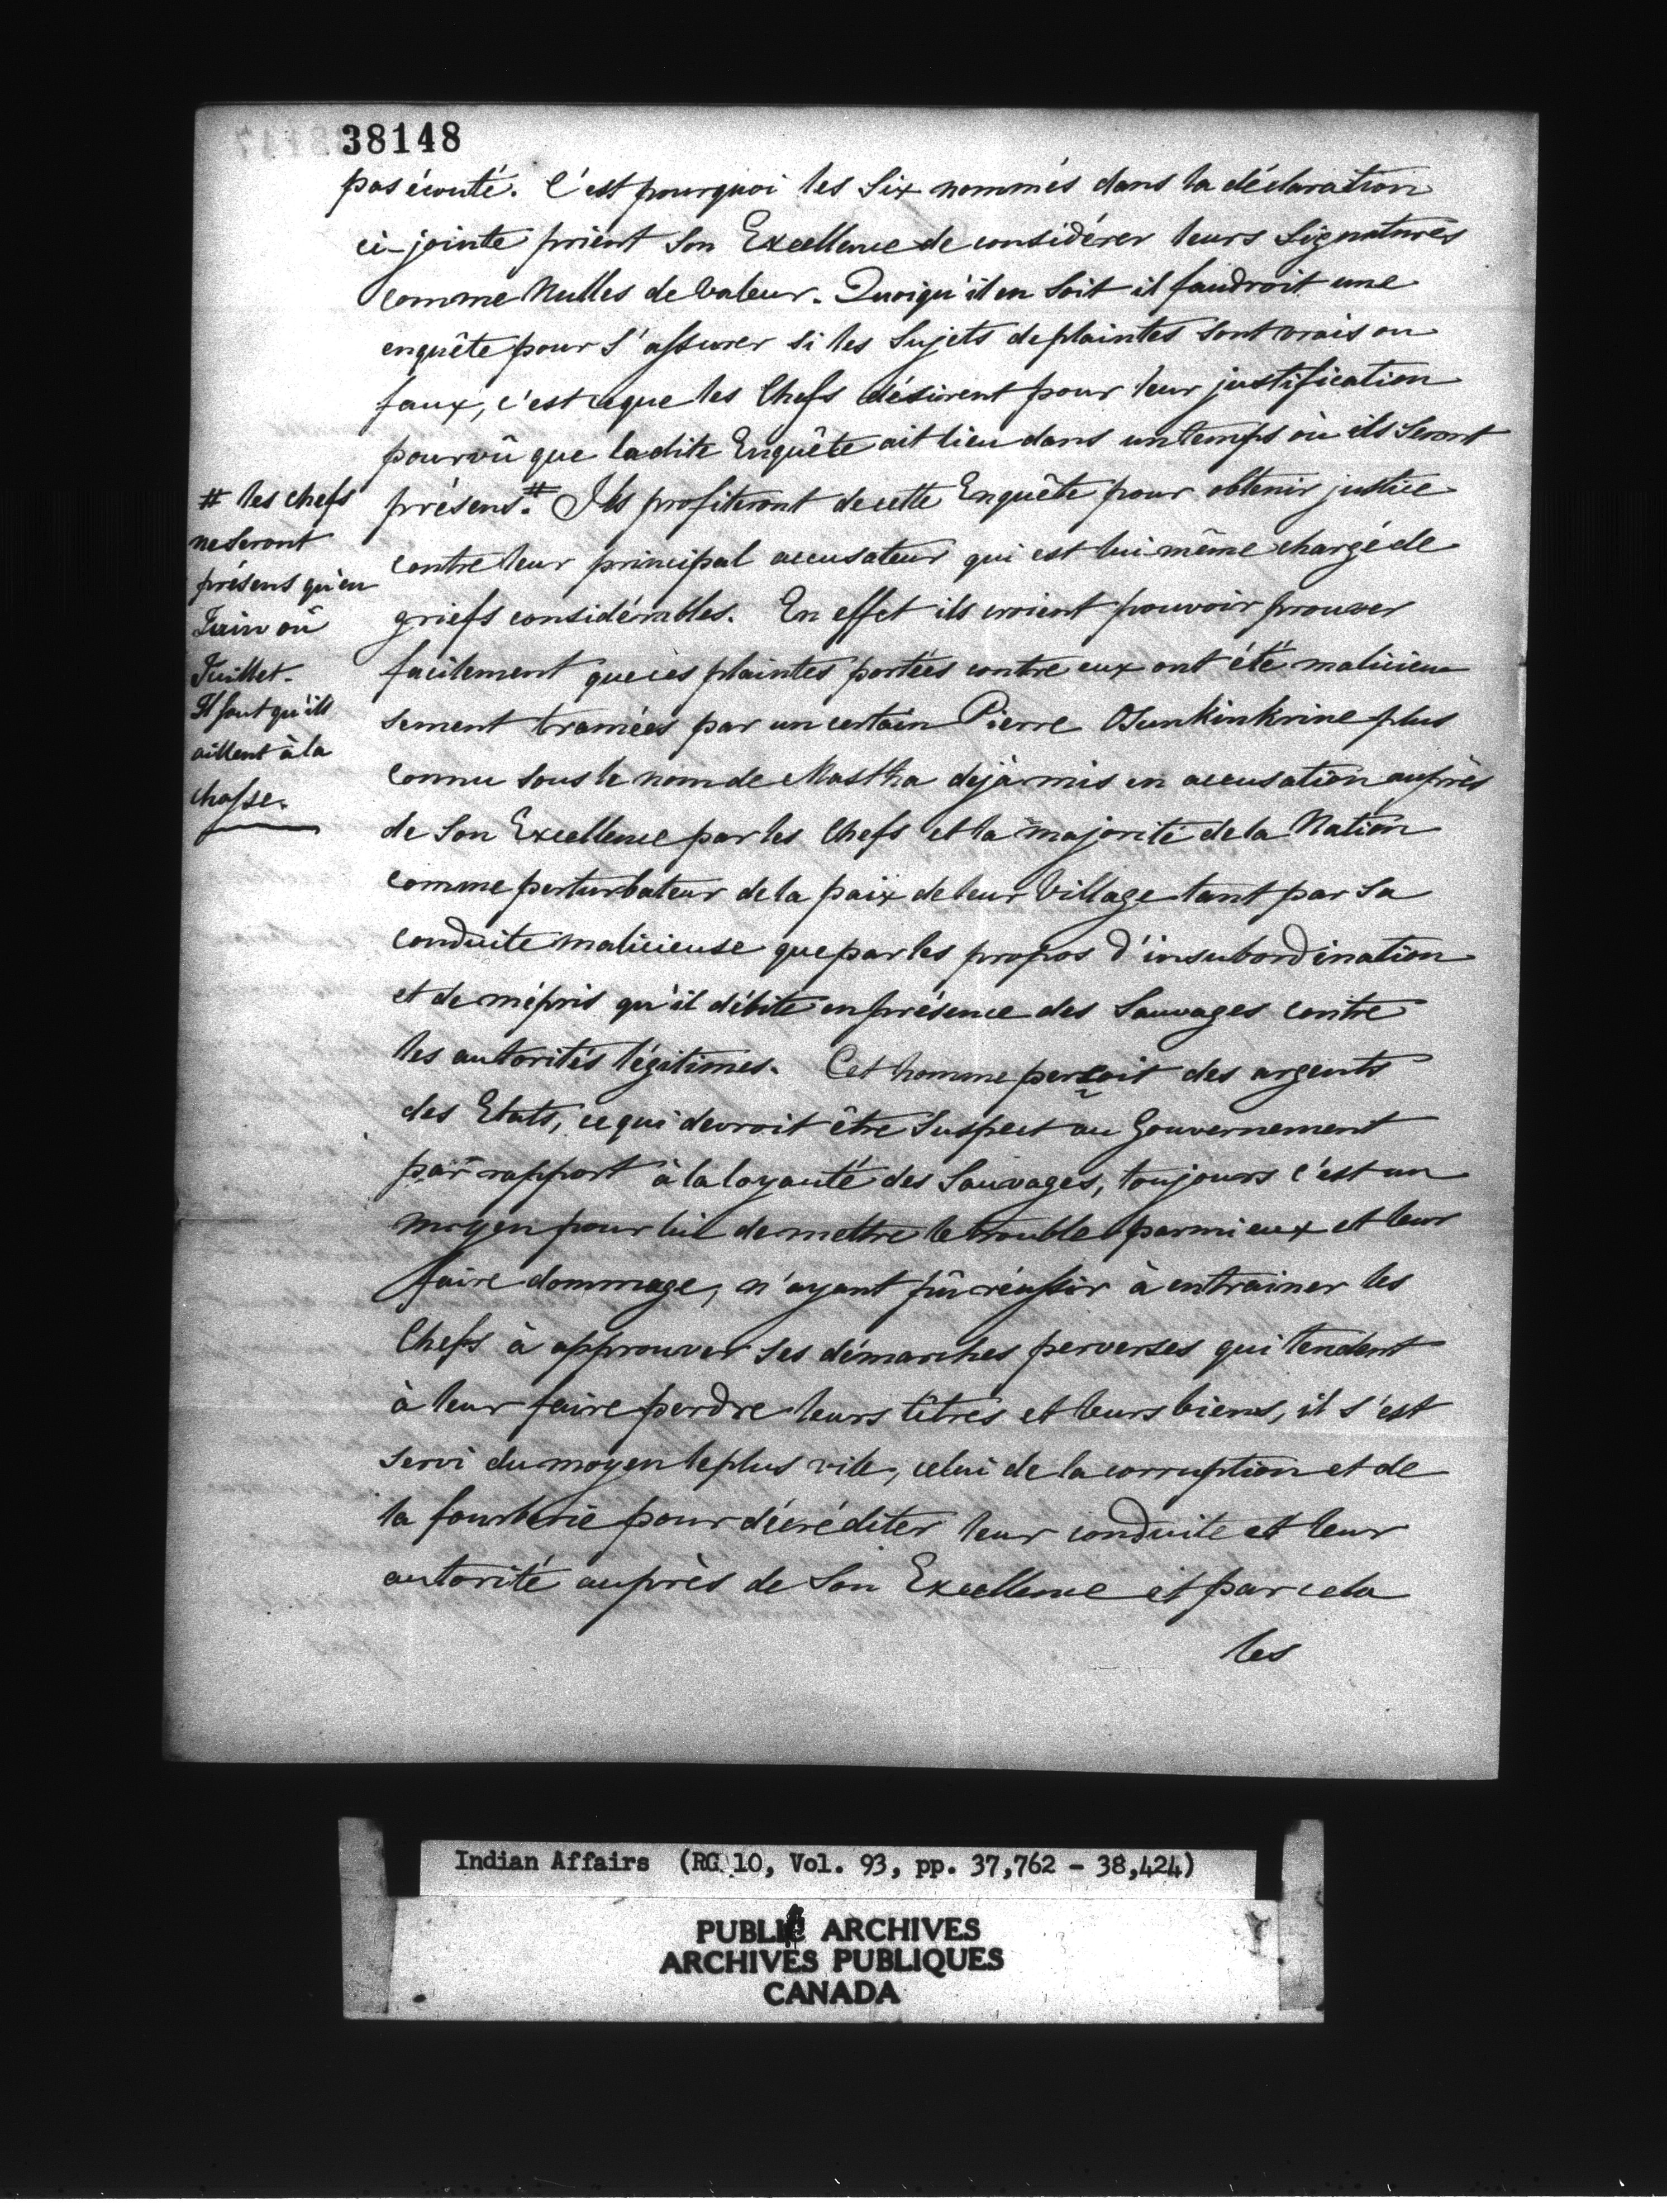 38148
pas écouté. C'est pourquoi les Six nommés dans la déclaration
ci-jointe prient Son Excellence de considérer leurs Signatures
comme Nulles de Valeur. Quoiqu'il en Soit il faudroit une
enquête pour s'assurer si les Sujets de plaintes Sont vrais ou
faux, c'est ce que les Chefs désirent pour leur justification
pourvû que la dite Enquête ait lieu dans un temps où ils Seront
présens.# Ils profiteront de cette Enquête pour obtenir justice
contre leur principal accusateur qui est lui même chargé de
griefs considérables. En effet ils croient pouvoir prouver
facilement que ces plaintes portées contre eux ont été malicieu
sement tramées par un certain Pierre Osunkinkrine plus
Connu Sous le nom de Mastha déjà mis en accusation auprès
de Son Excellence par les Chefs et la majorité de la Nation
comme perturbateur de la paix de leur Village tant par Sa
conduite malicieuse que par les propos d'insubordination
et de mépris qu'il débite en présence des Sauvages contre
les autorités légitimes. Cet homme perçoit des argents
des Etats, ce qui devroit être Suspect au Gouvernement
par rapport à la loyauté des Sauvages, toujours c'est un
moyen pour lui de mettre le trouble parmi eux et leur
faire dommage, n'ayant pû réussir à entrainer les
Chefs à approuver ses démarches perverses qui tendent
à leur faire perdre leurs titres et leurs biens, il s'est
Servi du moyen le plus vile, celui de la corruption et de
la fourberie pour décréditer leur conduite et leur
autorité auprès de Son Excellence et par cela
les
# les chefs
ne Seront
présens qu'en
Juin où
Juillet.
Il faut qu'ils
aillent à la
chasse.
Indian Affairs (RG 10, Vol. 93, pp. 37,762 - 38,424)
PUBLIC ARCHIVES
ARCHIVES PUBLIQUES
CANADA